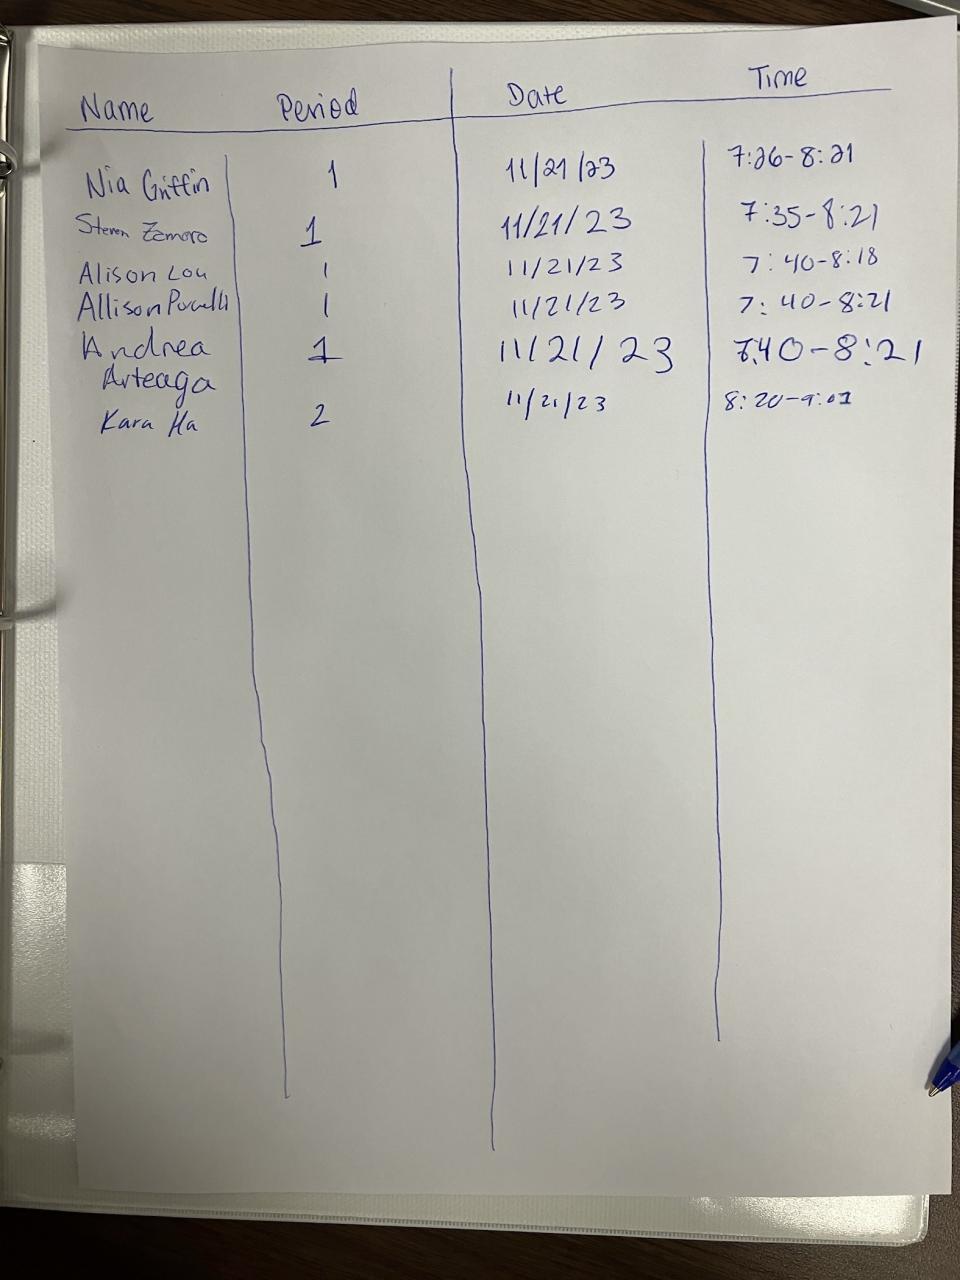 Name Period Date Time
Nia Griffin 1 11/21/23 7:26-8:21
Steven Zamora 1 11/21/23 7:35-8:21
Alison Lou 1 11/21/23 7:40-8:18
Allison 1 11/21/23 7:40-8:21
Andrea 1 11/21/23 7:40-8:21
Arteaga
Kara Ha 2 11/21/23 8:20-9:01